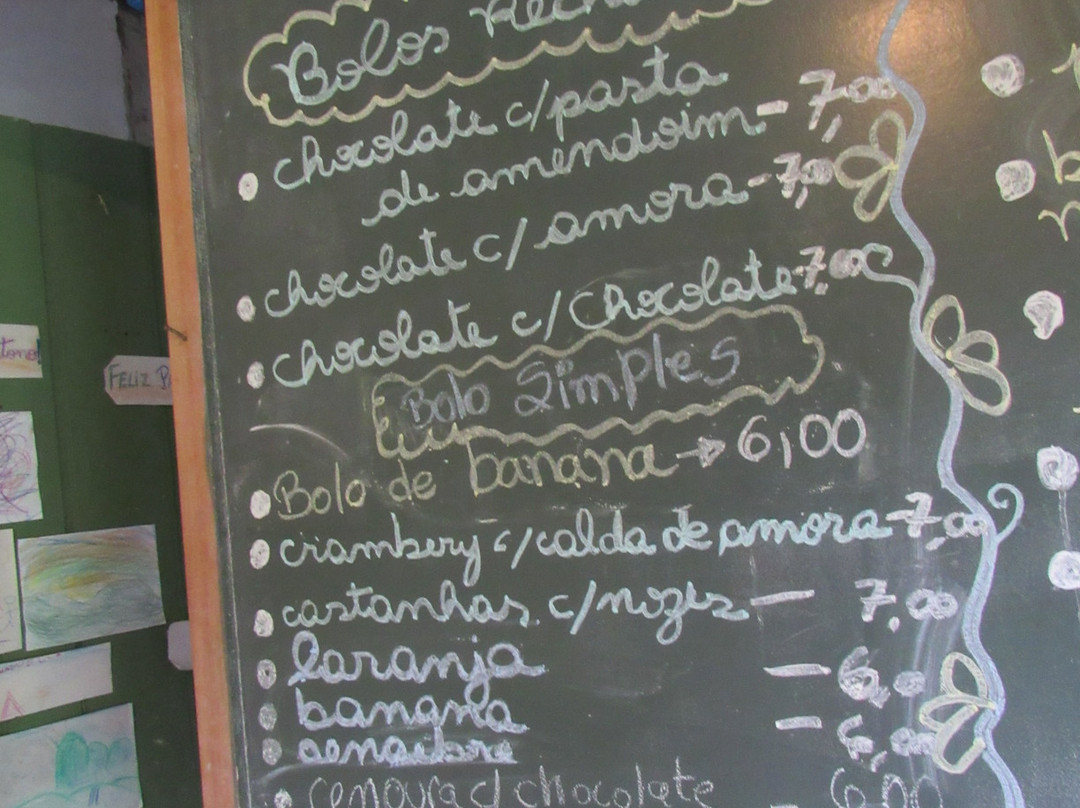 Bolos
chocolate c/pasta
de amendoim - 7,00
chocolate c/ amora - 7,00
chocolate c/ Chocolate - 7,00
Bolo Simples
Bolo de banana → 6,00
criambery c/calda de amora - 7,00
castanhas c/nozes — 7,00
laranja — 6,00
banana — 6,00
cenoura c/ chocolate - 6,00
FELIZ